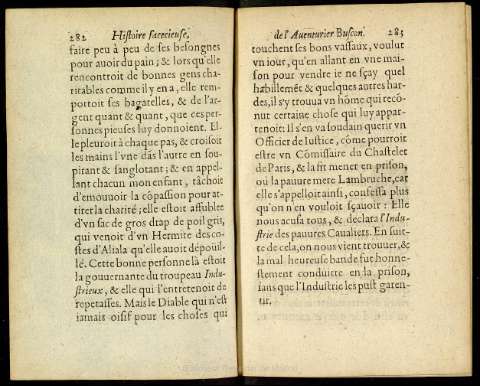 282 Histoire facecieuse,
faire peu à peu de ses besongnes
pour auoir du pain; & lors qu'elle
rencontroit de bonnes gens cha-
ritables comme il y en a, elle rem-
portoit ses bagatelles, & de l'ar-
gent quant & quant, que ces per-
sonnes pieuses luy donnoient. El-
le pleuroit à chaque pas, & croisoit
les mains l'vne dãs l'autre en sou-
pirant & sanglotant; & en appel-
lant chacun mon enfant, tâchoit
d'emouuoir la cõpassion pour at-
tirer la charité; elle estoit affublée
d'vn sac de gros drap de poil gris,
qui venoit d'vn Hermite des co-
stes d'Aliala qu'elle auoit dépouil-
lé. Cette bonne personne là estoit
la gouuernante du troupeau Indu-
strieux, & elle qui l'entretenoit de
repetasses. Mais le Diable qui n'est
iamais oisif pour les choses qui
de l'Auenturier Buscon. 283
touchent ses bons vassaux, voulut
vn iour, qu'en allant en vne mai-
son pour vendre ie ne sçay quel
habillemẽt & quelques autres har-
des, il s'y trouua vn hõme qui reco-
nut certaine chose qui luy appar-
tenoit: Il s'en va soudain querir vn
Officier de Iustice, cõme pourroit
estre vn Cõmissaire du Chastelet
de Paris, & la fit mener en prison,
où la pauure mere Lambruche, car
elle s'appelloit ainsi, confessa plus
qu'on n'en vouloit sçauoir: Elle
nous acusa tous, & declara l'Indu-
strie des pauures Caualiers. En suit-
te de cela, on nous vient trouuer, &
la mal heureuse bande fut honne-
stement conduitte en la prison,
sans que l'Industrie les pust garen-
tir.